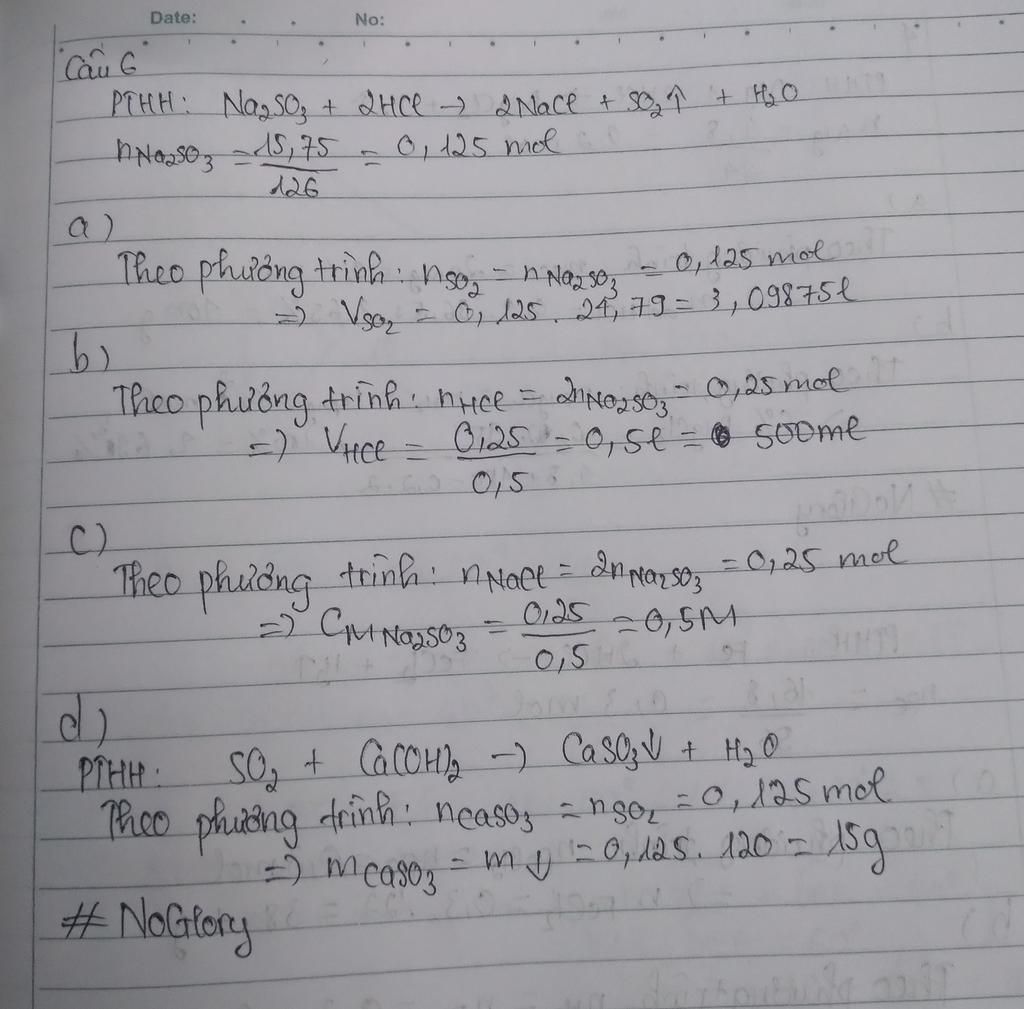 Date: No:
Câu 6
PTHH: Na₂SO₃ + 2HCl → 2NaCl + SO₂↑ + H₂O
nNa₂SO₃ = 15,75/126 = 0,125 mol
a)
Theo phương trình: nSO₂ = nNa₂SO₃ = 0,125 mol
=> VSO₂ = 0,125. 24,79 = 3,09875l
b)
Theo phương trình: nHCl = 2nNa₂SO₃ = 0,25 mol
=> VHCl = 0,25/0,5 = 0,5l = 500ml
c)
Theo phương trình: nNaCl = 2nNa₂SO₃ = 0,25 mol
=> CMNa₂SO₃ = 0,25/0,5 = 0,5M
d)
PTHH: SO₂ + Ca(OH)₂ → CaSO₃↓ + H₂O
Theo phương trình: nCaSO₃ = nSO₂ = 0,125 mol
=> mCaSO₃ = m↓ = 0,125. 120 = 15g
# NoGlory